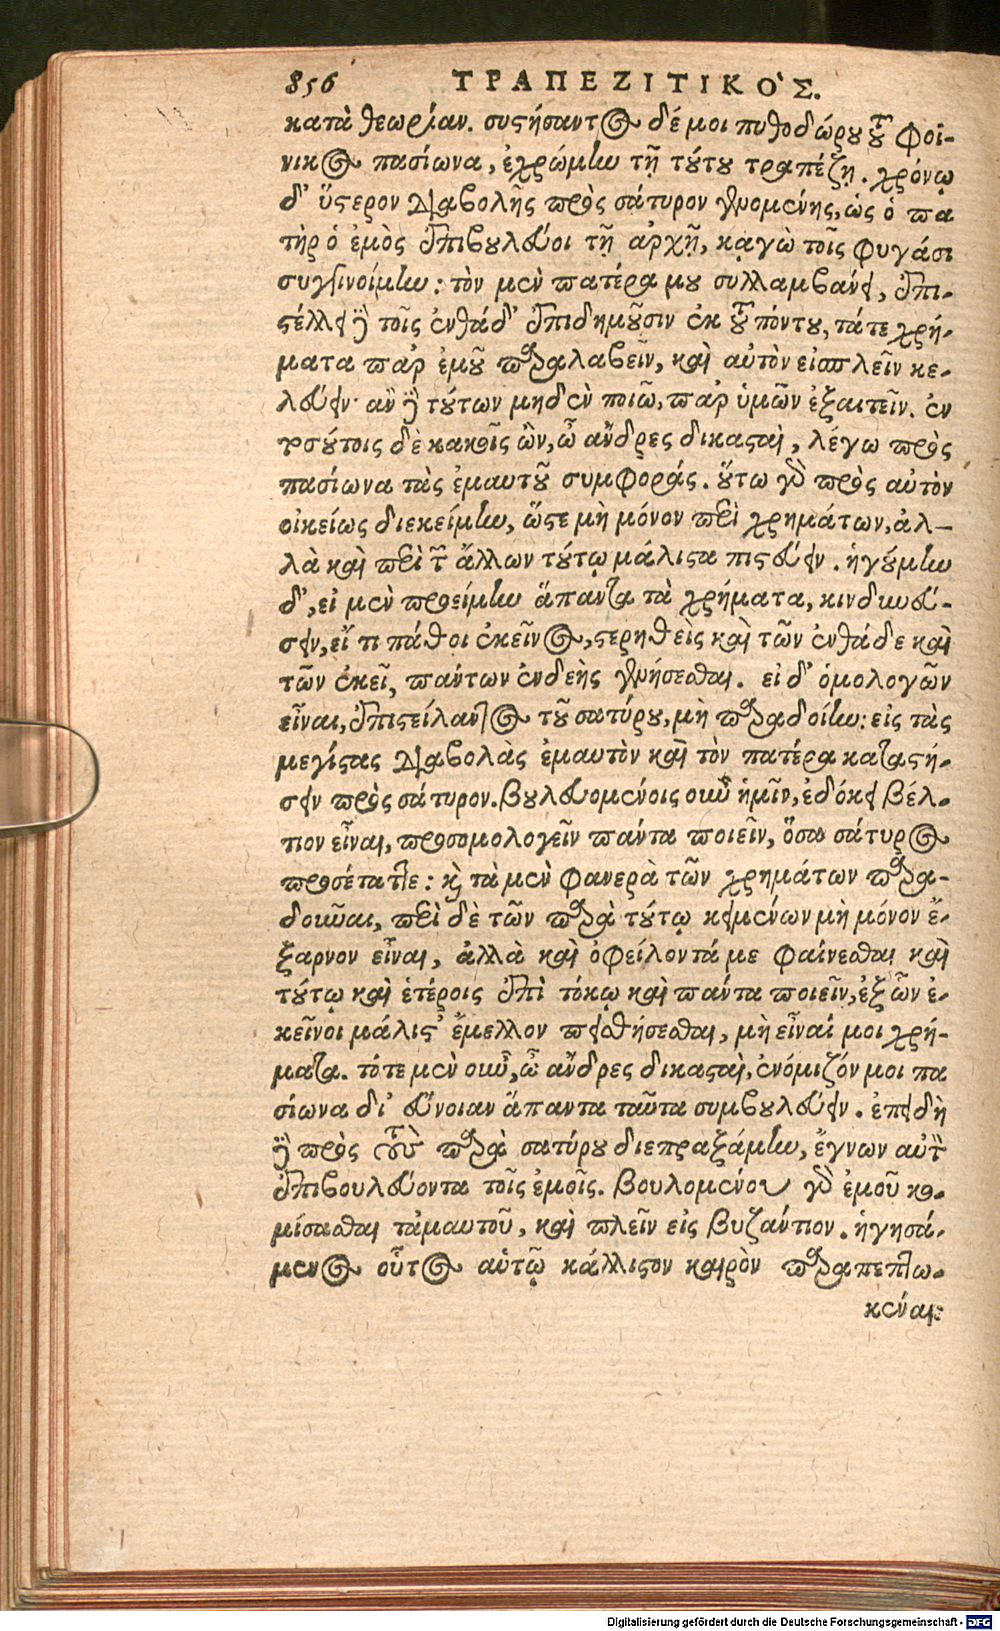 856 ΤΡΑΠΕΖΙΤΙΚΟ'Σ.
κατὰ θεωρίαν. συστήσαντος δέ μοι πυθοδώρου τοῦ φοί-
νικος πασίωνα, ἐχρώμην τῇ τούτου τραπέζῃ. χρόνῳ
δ' ὕστερον διαβολῆς πρὸς σάτυρον γενομένης, ὡς ὁ πα
τὴρ ὁ ἐμὸς ἐπιβουλεύοι τῇ ἀρχῇ, κᾀγὼ τοῖς φυγάσι
συγγινοίμην: τὸν μὲν πατέρα μου συλλαμβάνει, ἐπι-
στέλλει δὲ τοῖς ἐνθάδ' ἐπιδημοῦσιν ἐκ τοῦ πόντου, τά τε χρή-
ματα παρ ἐμοῦ παραλαβεῖν, καὶ αὐτὸν εἰσπλεῖν κε-
λεύειν· ἂν δὲ τούτων μηδὲν ποιῶ, παρ ὑμῶν ἐξαιτεῖν. ἐν
τοσούτοις δὲ κακοῖς ὢν, ὦ ἄνδρες δικασταὶ, λέγω πρὸς
πασίωνα τὰς ἐμαυτοῦ συμφοράς. οὕτω γὰρ πρὸς αὐτὸν
οἰκείως διεκείμην, ὥστε μὴ μόνον περὶ χρημάτων, ἀλ-
λὰ καὶ περὶ τῶν ἄλλων τούτῳ μάλιστα πιστεύειν. ἡγούμην
δ', εἰ μὲν προείμην ἅπαντα τὰ χρήματα, κινδυνεύ-
σειν, εἴ τι πάθοι ἐκεῖνος, στερηθεὶς καὶ τῶν ἐνθάδε καὶ
τῶν ἐκεῖ, πάντων ἐνδεὴς γενήσεσθαι. εἰ δ' ὁμολογῶν
εἶναι, ἐπιστείλαντος τοῦ σατύρου, μὴ παραδοίην: εἰς τὰς
μεγίστας διαβολὰς ἐμαυτὸν καὶ τὸν πατέρα καταστή-
σειν πρὸς σάτυρον. βουλευομένοις οὖν ἡμῖν, ἐδόκει βέλ-
τιον εἶναι, προσομολογεῖν πάντα ποιεῖν, ὅσα σάτυρος
προσέταττε: καὶ τὰ μὲν φανερὰ τῶν χρημάτων παρα-
δοῦναι, περὶ δὲ τῶν παρὰ τούτῳ κειμένων μὴ μόνον ἔ-
ξαρνον εἶναι, ἀλλὰ καὶ ὀφείλοντά με φαίνεσθαι καὶ
τούτῳ καὶ ἑτέροις ἐπὶ τόκῳ καὶ πάντα ποιεῖν, ἐξ ὧν ἐ-
κεῖνοι μάλιστ' ἔμελλον πεισθήσεσθαι, μὴ εἶναί μοι χρή-
ματα. τότε μὲν οὖν, ὦ ἄνδρες δικασταὶ, ἐνόμιζόν μοι πα
σίωνα δι' εὔνοιαν ἅπαντα ταῦτα συμβουλεύειν. ἐπειδὴ
δὲ πρὸς τοὺς παρὰ σατύρου διεπραξάμην, ἔγνων αὐτὸν
ἐπιβουλεύοντα τοῖς ἐμοῖς. βουλομένου γὰρ ἐμοῦ κο-
μίσασθαι τἀμαυτοῦ, καὶ πλεῖν εἰς βυζάντιον. ἡγησά-
μενος οὗτος αὑτῷ κάλλιστον καιρὸν παραπεπτω-
κέναι: